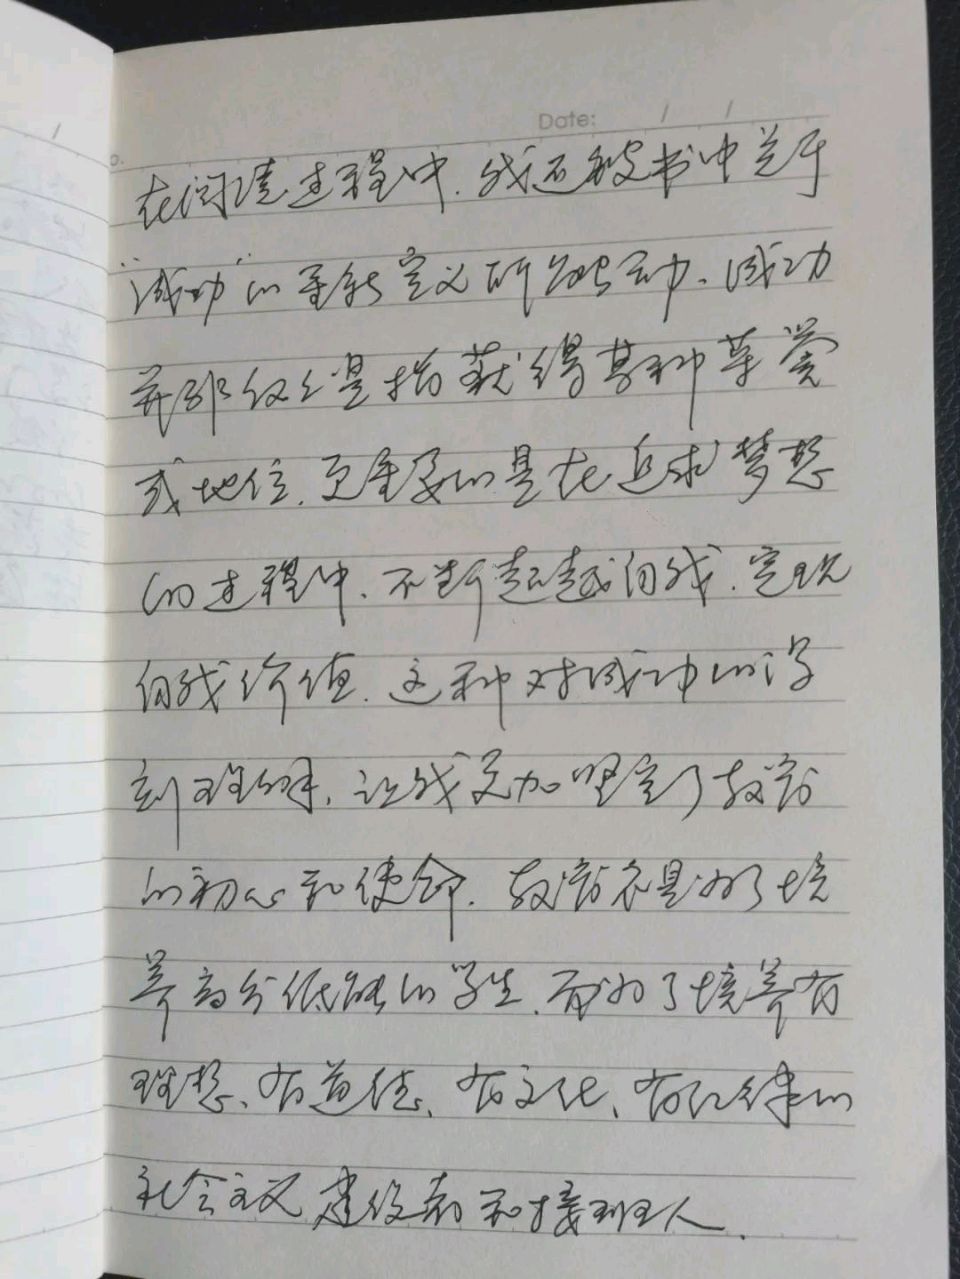 Date: / /
在阅读过程中,我还被书中关于
"成功"的重新定义所触动.成功
并非仅仅是指获得某种荣誉
或地位,更重要的是在追求梦想
的过程中,不断超越自我,实现
自我价值.这种对成功的深
刻理解,让我更加坚定了教育
的初心和使命.教育不是为了培
养高分低能的学生,而为了培养有
理想、有道德、有文化、有纪律的
社会主义建设者和接班人.